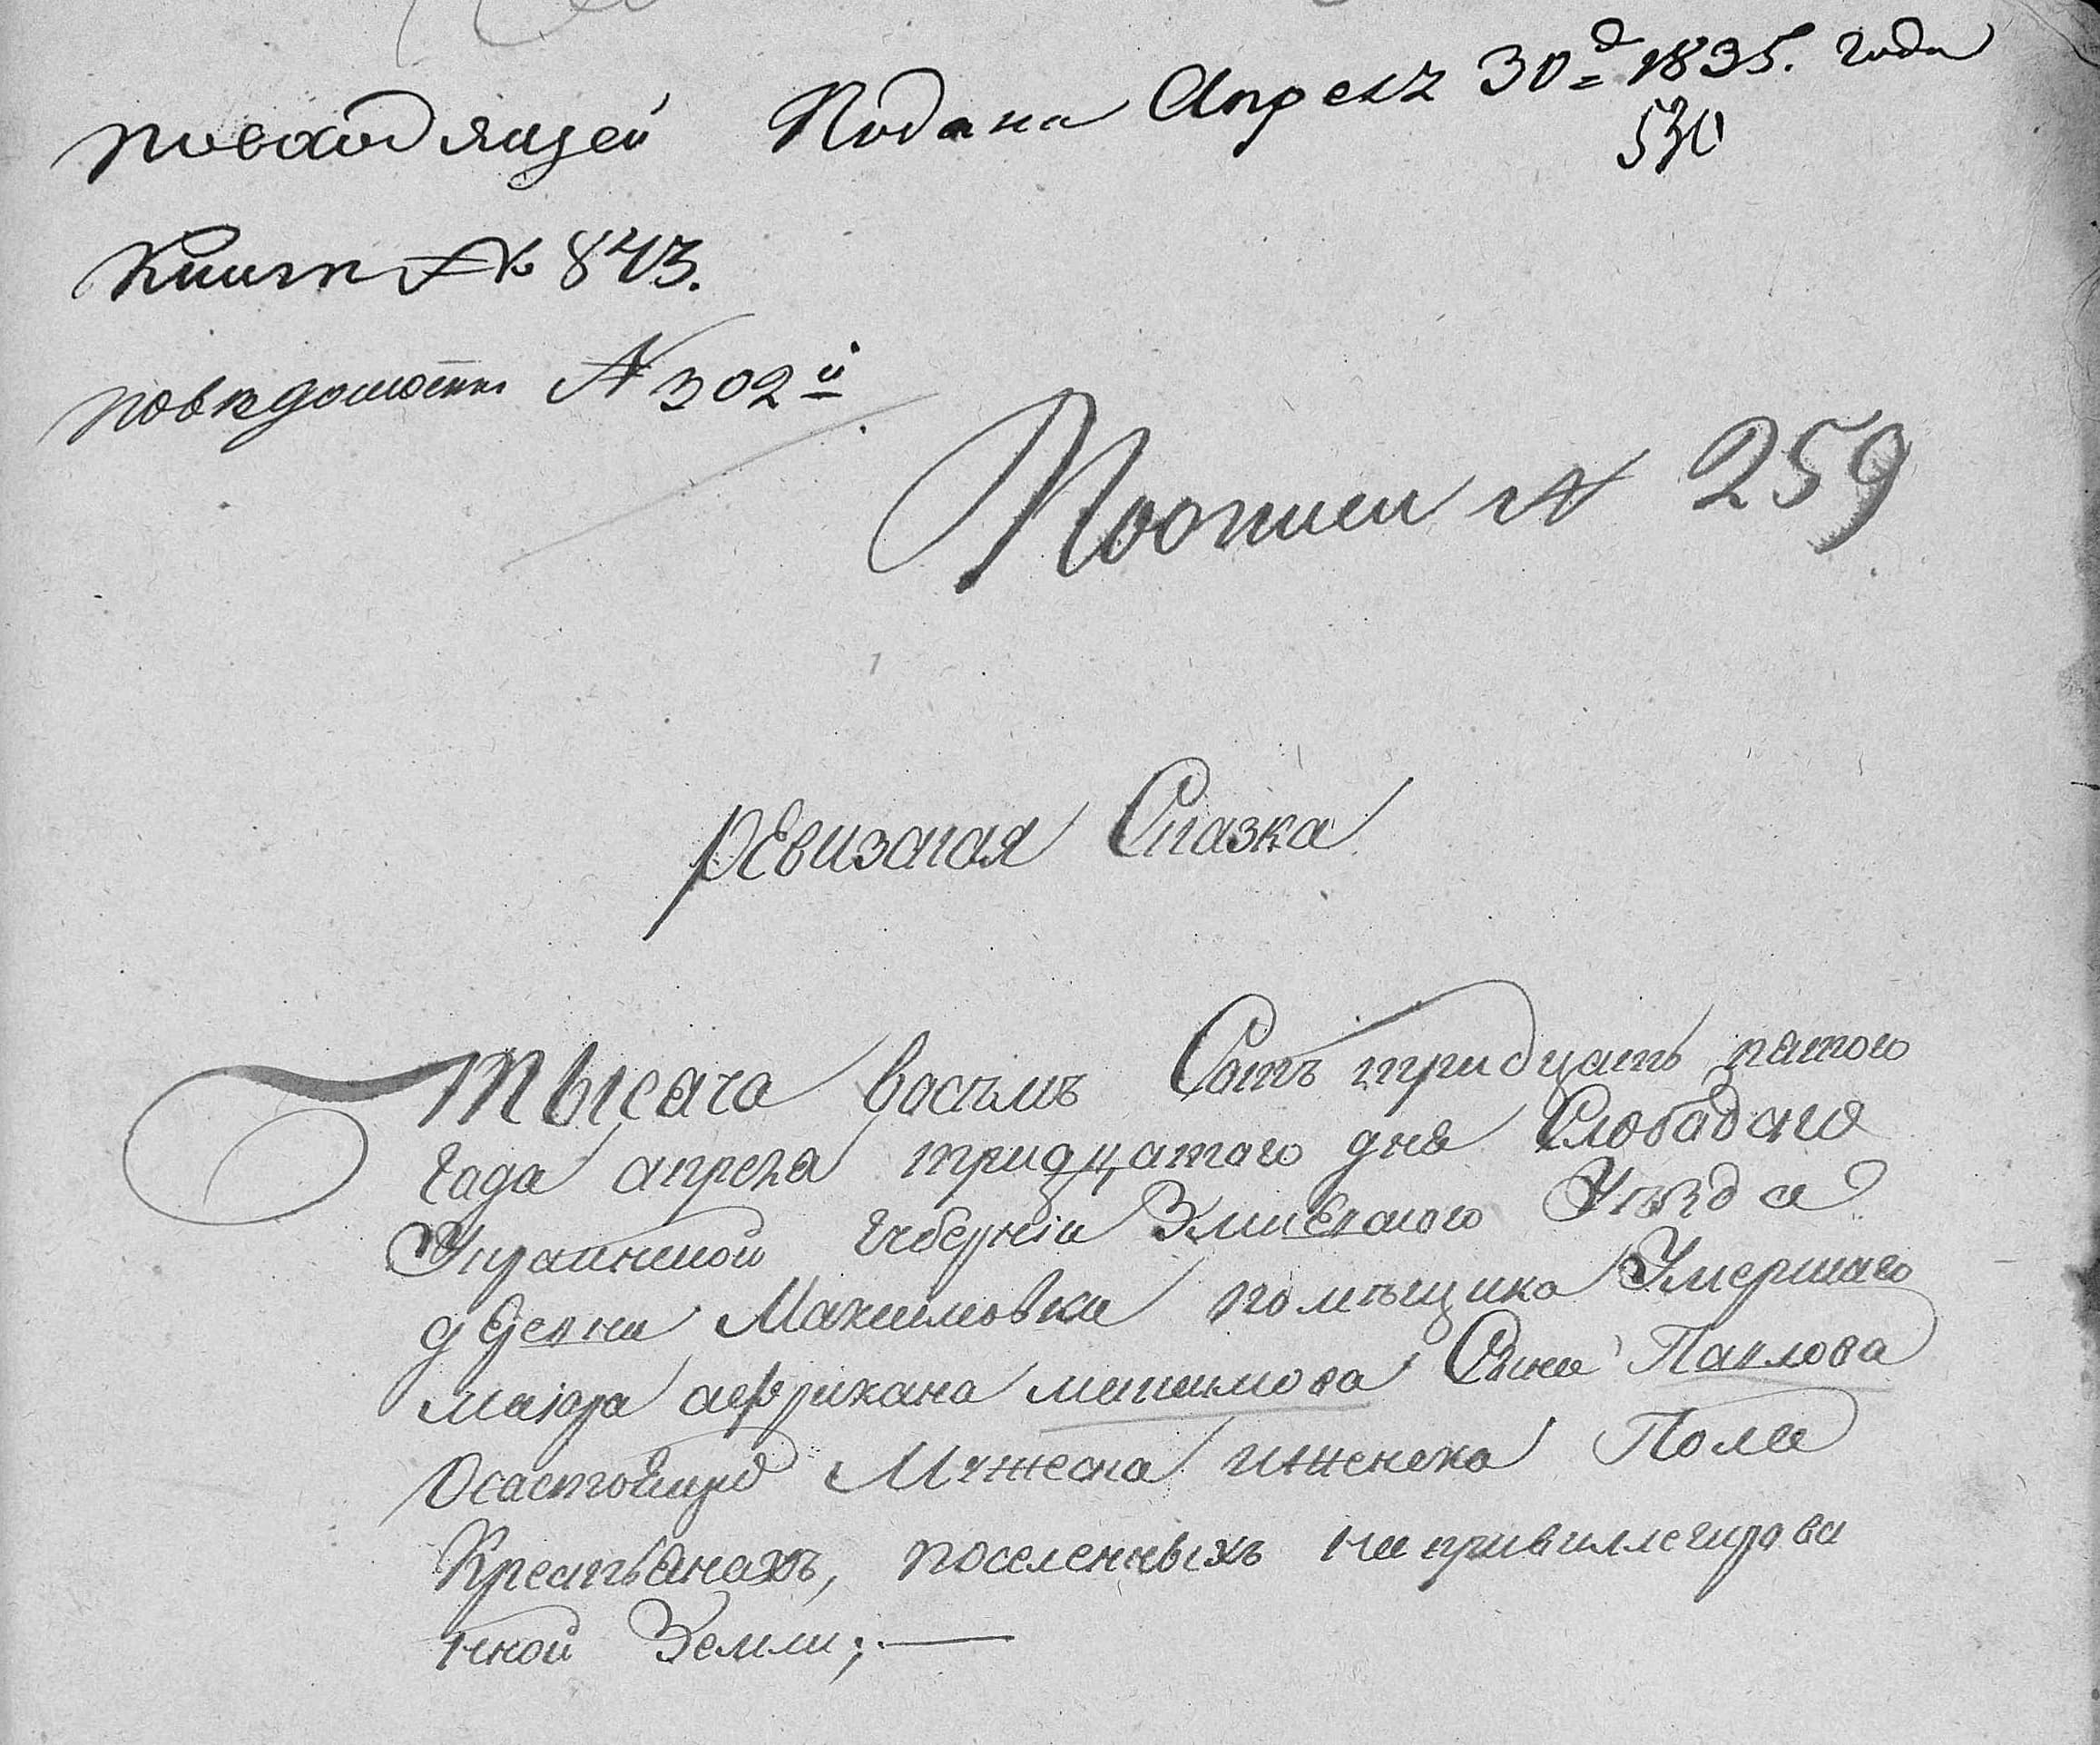 повходящей Подана Апреля 30=д 1835. года
530
книги № 843.
повѣдомости № 302й
Поописи № 259
ревизская Сказка
Тысяча восъмъ Сотъ тридцать пятого
года апреля тридцатого дня Слободско
Украинской губерніи Змиевского Уѣзда
деревни Максимовки помѣщика Умершаго
маіора африкана максимова Сына Павлова
Осастоящихъ Мужеска иженска Пола
Крестьянахъ, поселенныхъ на привиллегирова
нной Земли;